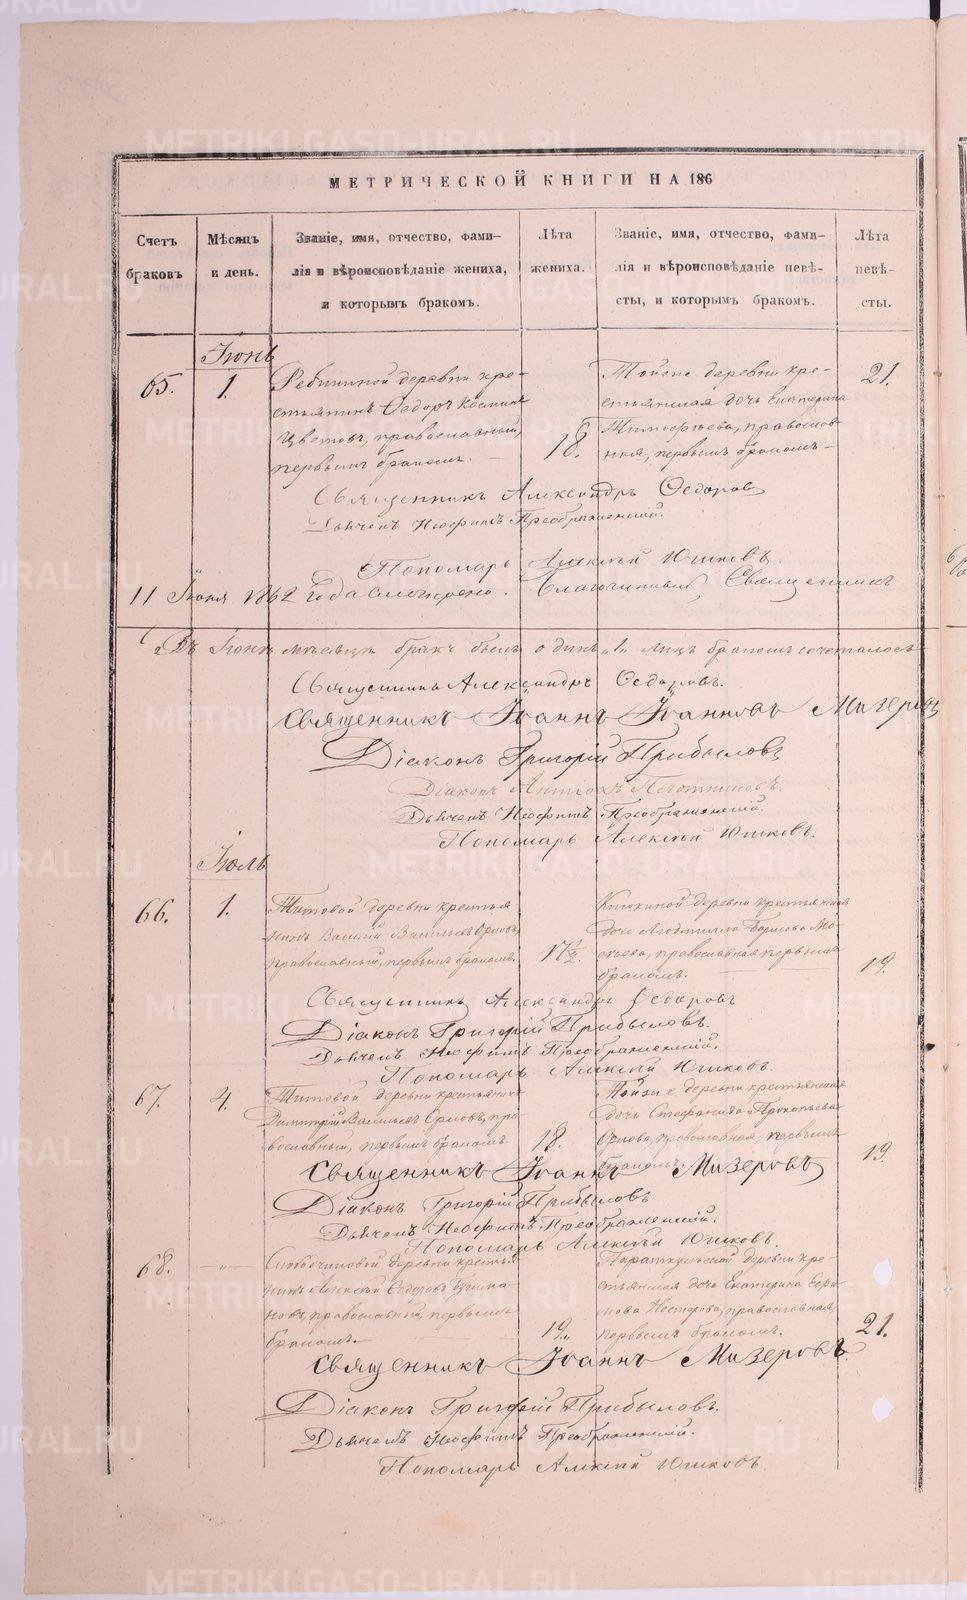 METRIKI.GASO-URAL.RU
МЕТРИЧЕСКОЙ КНИГИ НА 186
Счетъ браковъ
Мѣсяцъ и день.
Званіе, имя, отчество, фами-
лія и вѣроисповѣданіе жениха,
и которымъ бракомъ.
Лѣта жениха.
Званіе, имя, отчество, фами-
лія и вѣроисповѣданіе невѣ-
сты, и которымъ бракомъ.
Лѣта невѣ-
сты.
Іюнь
65.
1.
деревни кре-
стьянинъ Ѳедоръ
Цвѣтовъ, православный,
первымъ бракомъ.
18.
деревни кре-
стьянская дочь Екатерина
Тимоѳѣева, православ-
ная, первымъ бракомъ
21.
Священникъ Александръ Ѳедоровъ
Дьячекъ Неофитъ Преображенскій.
Пономарь Алексѣй Юшковъ.
11 Іюня 1862 года смотрено. Благочинный Священникъ
Въ Іюнѣ мѣсяцѣ бракъ былъ одинъ „1„ лицъ бракомъ сочеталось
Священникъ Александръ Ѳедоровъ.
Священникъ Іоаннъ Іоанновъ Мизеровъ
Діаконъ Григорій Прибыловъ
Діаконъ Плотниковъ.
Дьячекъ Неофитъ Преображенскій.
Пономарь Алексѣй Юшковъ.
Іюль
66.
1.
Титовой деревни крестья
нинъ Василій Васильевъ Орловъ,
православный, первымъ бракомъ.
17½
деревни крестьянская
дочь Людмила
православная первымъ
бракомъ.
19.
Священникъ Александръ Ѳедоровъ
Діаконъ Григорій Прибыловъ.
Дьячекъ Неофитъ Преображенскій.
Пономарь Алексѣй Юшковъ.
67.
4.
Титовой деревни крестьянинъ
Димитрій Васильевъ Орловъ, пра-
вославный, первымъ бракомъ.
18.
деревни крестьянская
дочь Стефанида Прокопьева
Орлова, православная, первымъ
бракомъ.
19.
Священникъ Іоаннъ Мизеровъ
Діаконъ Григорій Прибыловъ
Дьячекъ Неофитъ Преображенскій.
Пономарь Алексѣй Юшковъ.
68.
деревни крестья-
нинъ Алексѣй Ѳедоровъ
новъ, православный, первымъ
бракомъ.
19.
деревни кре-
стьянская дочь Екатерина
Нестерова, православная
первымъ бракомъ.
21.
Священникъ Іоаннъ Мизеровъ.
Діаконъ Григорій Прибыловъ.
Дьячекъ Неофитъ Преображенскій.
Пономарь Алексѣй Юшковъ.